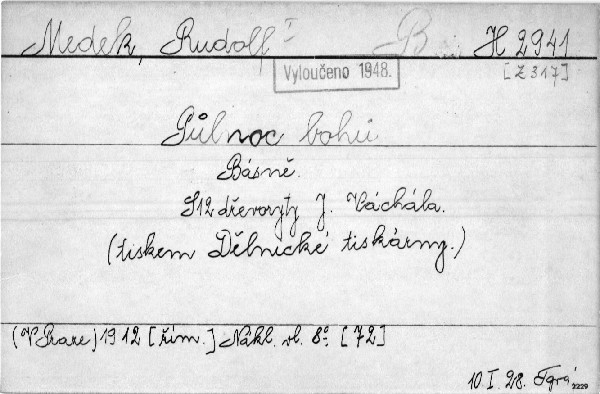 Medek, Rudolf I B H 2941
Vyloučeno 1948. [Z 317]
Půlnoc bohů
Básně.
S 12 dřevoryty J. Váchála.
(tiskem Dělnické tiskárny.)
(V Praze) 1912 [řím.] Nákl. vl. 8° [72]
10. I. 28. 2229